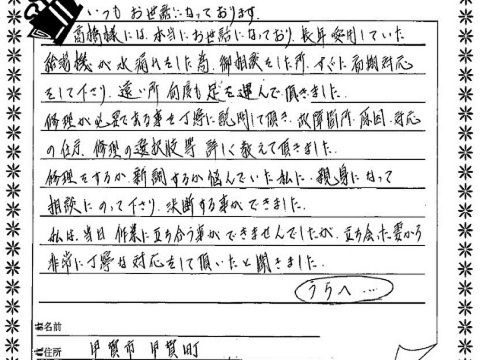 いつもお世話になっております。
高橋様には、本当にお世話になっており、長年愛用していた
給湯機が水漏れをした為、御相談をした所、すぐに初期対応
をして下さり、遠い所何度も足を運んで頂きました。
修理が必要である事を丁寧に説明して頂き、故障箇所、原因、対応
の仕方、修理の選択肢等詳しく教えて頂きました。
修理をするか新調するか悩んでいた私に、親身になって
相談にのって下さり、決断する事ができました。
私は、当日作業に立ち合う事ができませんでしたが、立ち会った妻から
非常に丁寧な対応をして頂いたと聞きました。
うらへ…
お名前
ご住所 甲賀市甲賀町